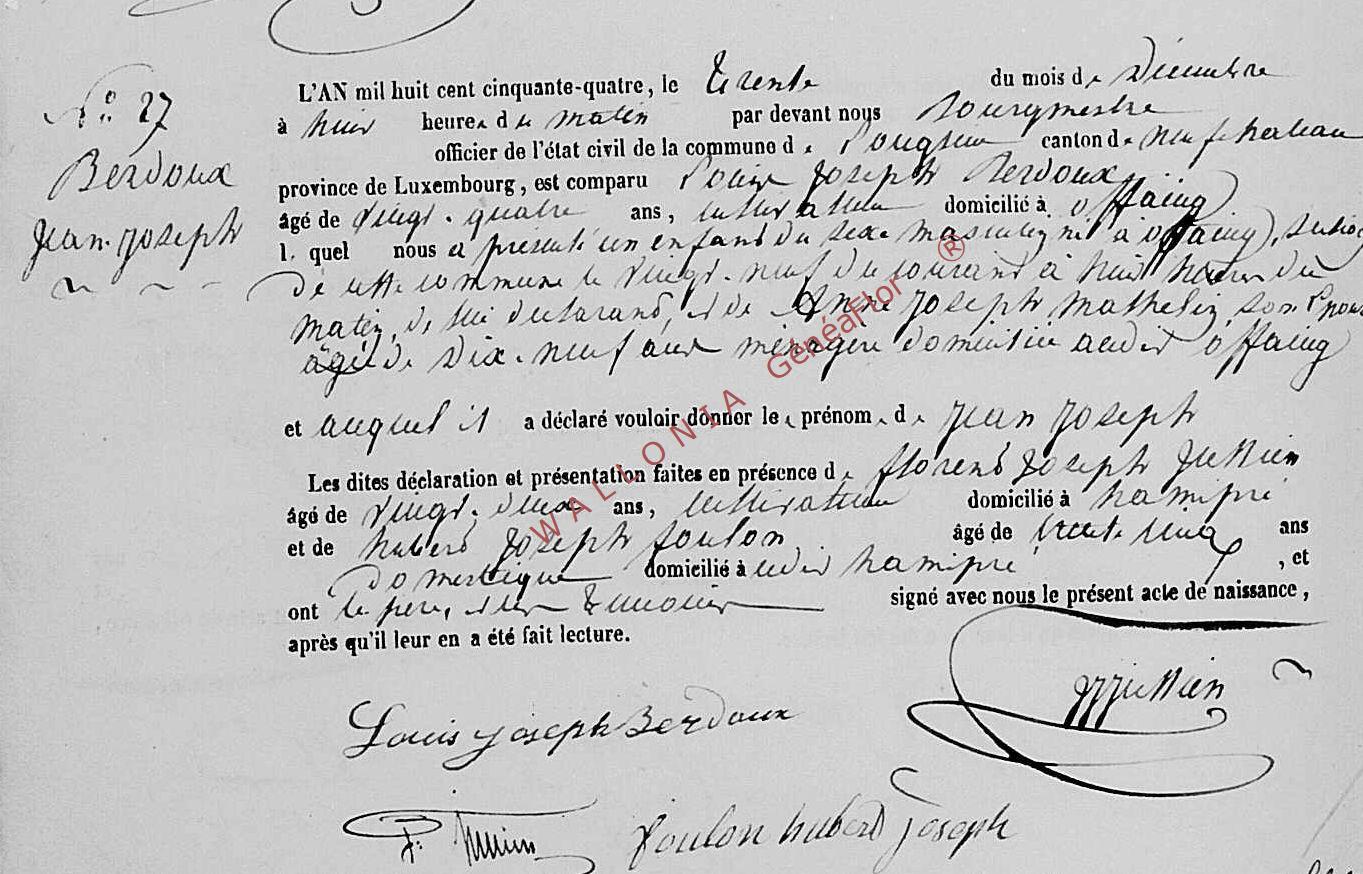 N° 27
Berdoux
Jean Joseph
L'AN mil huit cent cinquante-quatre, le Trente du mois de Décembre
à huit heures du matin par devant nous Bourgmestre
officier de l'état civil de la commune de Longlier canton de neufchateau
province de Luxembourg, est comparu Louis Joseph Berdoux
âgé de vingt-quatre ans, cultivateur domicilié à offaing
lequel nous a présenté un enfant du sexe masculin né à offaing, section
de cette commune le vingt-neuf du courant à huit heures du
matin, de lui déclarant, et de Anne Joseph Mathelin, son Epouse
âgée de Dix-neuf ans ménagère domiciliée audit offaing
et auquel il a déclaré vouloir donner les prénoms de Jean Joseph
Les dites déclaration et présentation faites en présence de florent Joseph Jullien
âgé de vingt-deux ans, cultivateur domicilié à hamipré
et de hubert Joseph foulon âgé de ans
Domestique domicilié à udit hamipré, et
ont le père, et les témoins signé avec nous le présent acte de naissance,
après qu'il leur en a été fait lecture.
Louis Joseph Berdoux
Jullien
foulon hubert Joseph
WALLONIA GénéaFlor ®